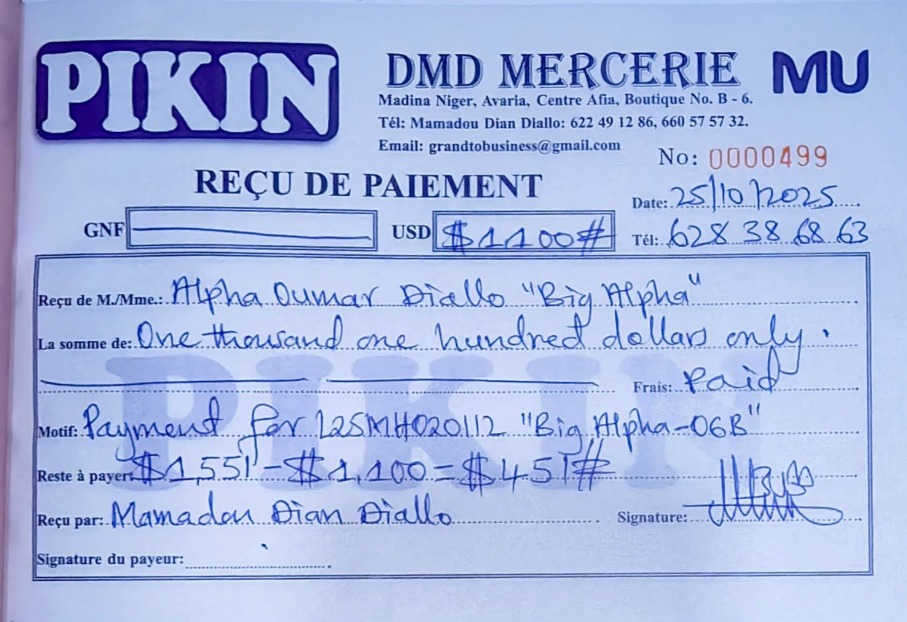 PIKIN
DMD MERCERIE
MU
Madina Niger, Avaria, Centre Afia, Boutique No. B - 6.
Tél: Mamadou Dian Diallo: 622 49 12 86, 660 57 57 32.
Email: grandtobusiness@gmail.com
No: 0000499
REÇU DE PAIEMENT
Date: 25/10/2025
GNF
USD $1100#
Tél: 628 38 68 63
Reçu de M./Mme.: Alpha Oumar Diallo "Big Alpha"
La somme de: One thousand one hundred dollars only.
Frais: Paid
Motif: Payment for L25MH020112 "Big Alpha-06B"
Reste à payer: $1,551 - $1,100 = $451#
Reçu par: Mamadou Dian Diallo
Signature:
Signature du payeur:
PIKIN